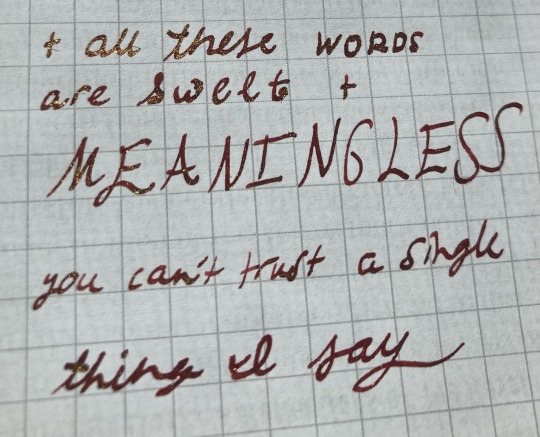 + all these words
are swelt +
MEANINGLESS
you can't trust a single
thing I say